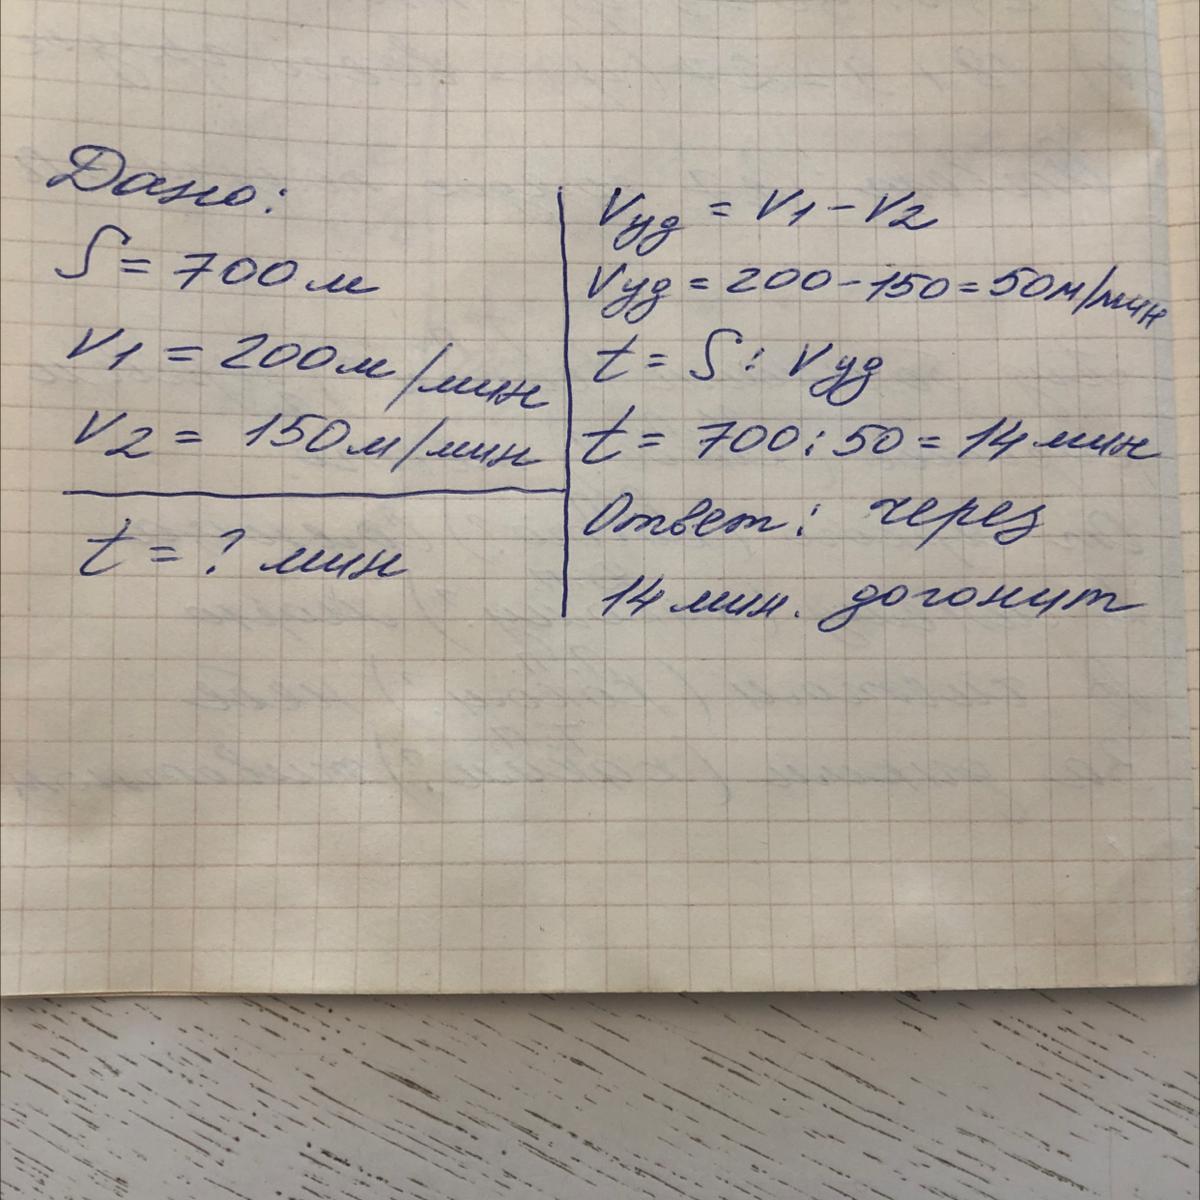 Дано:
S = 700 м
V1 = 200 м/мин
V2 = 150 м/мин
t = ? мин
Vуд = V1 - V2
Vуд = 200 - 150 = 50 м/мин
t = S : Vуд
t = 700 : 50 = 14 мин
Ответ: через
14 мин. догонит